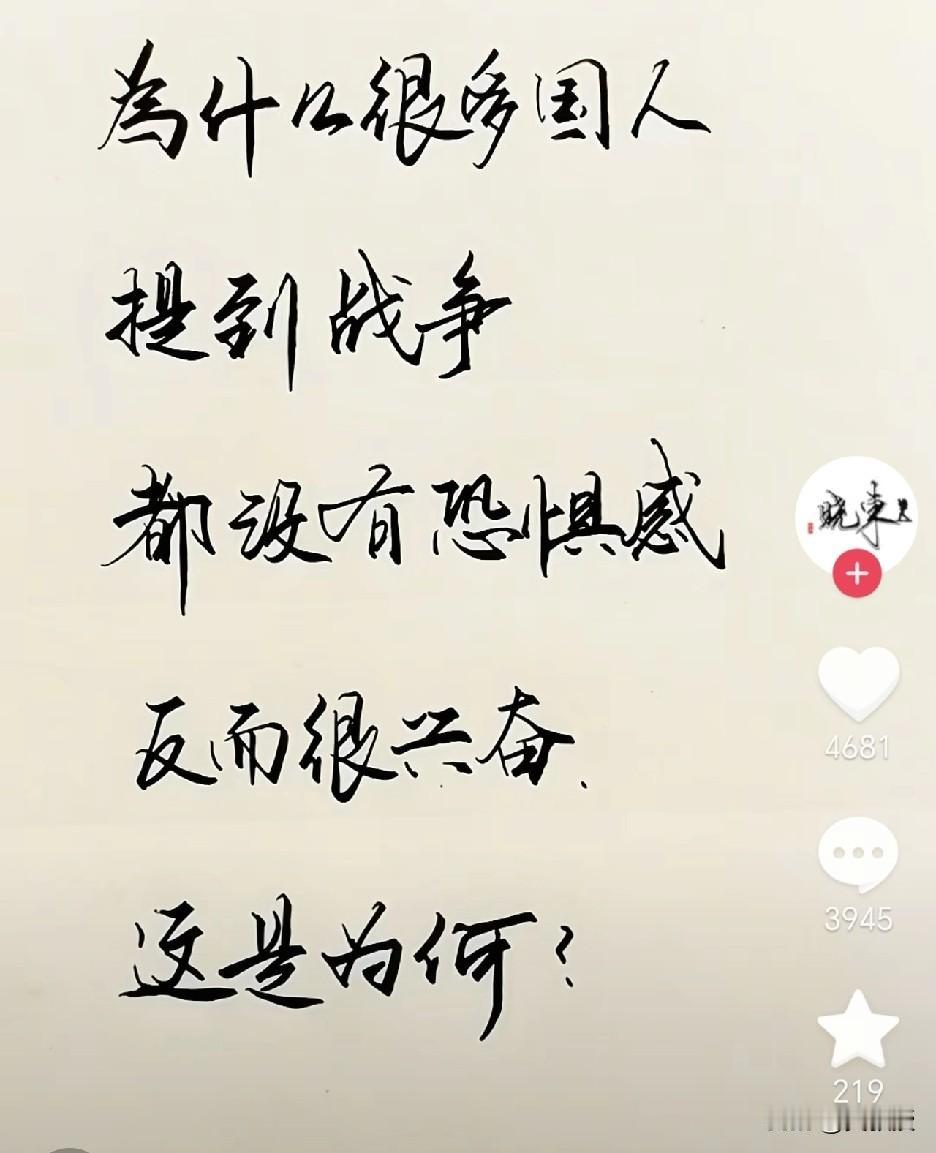 為什么很多国人
提到战争
都没有恐惧感
反而很兴奋.
这是为何?
晓東
4681
3945
219